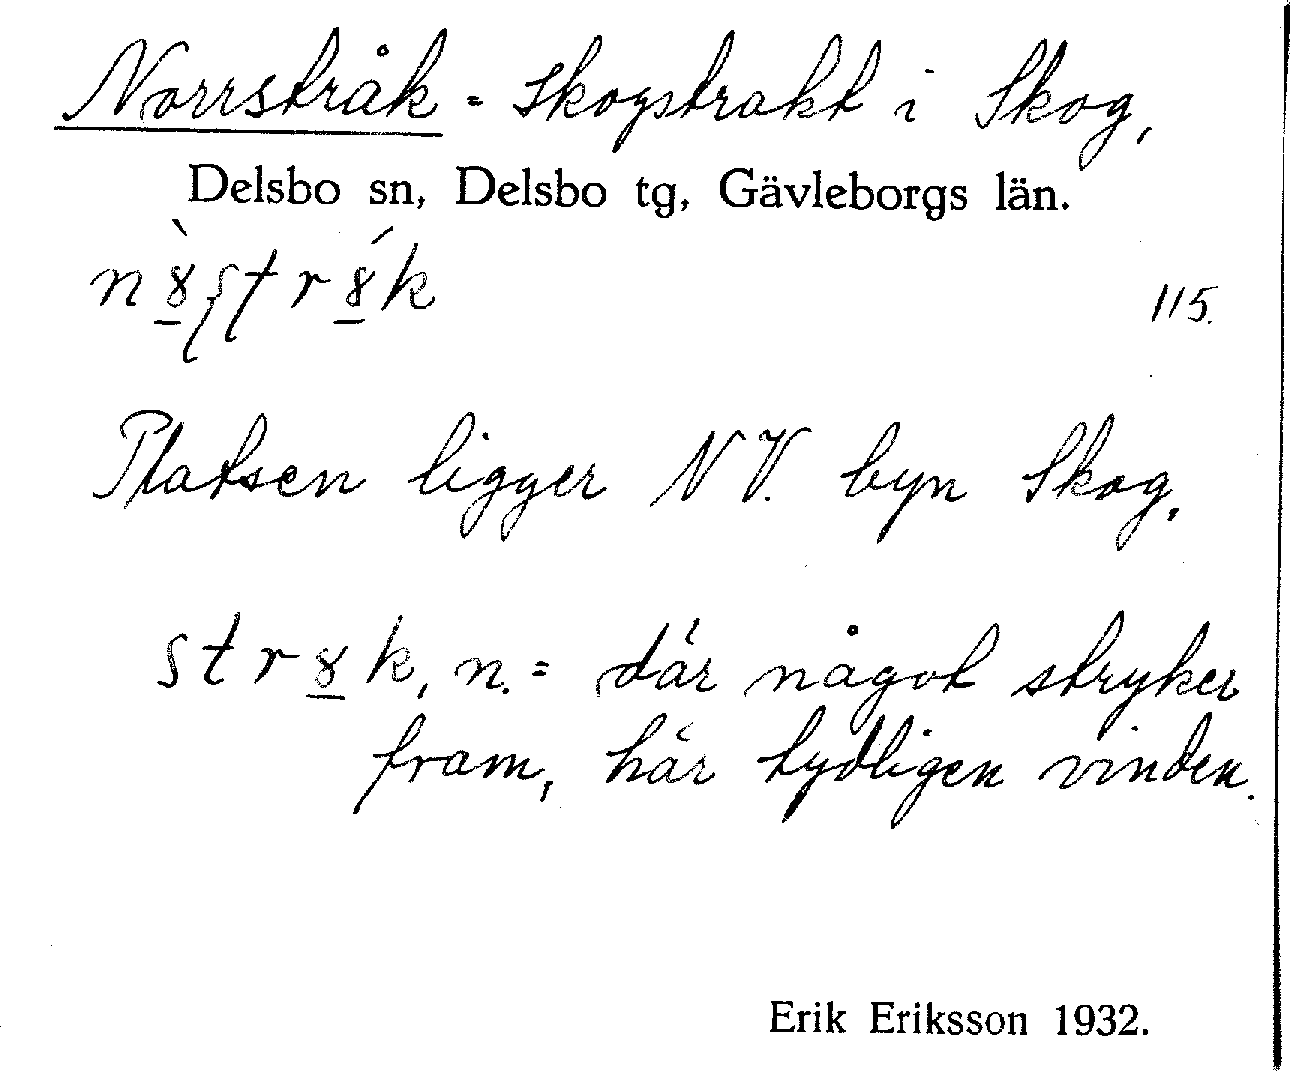 Norrstråk = skogstrakt i Skog,
Delsbo sn, Delsbo tg, Gävleborgs län.
115.
Platsen ligger NV. byn Skog.
n. = där något stryker
fram, här tydligen vinden.
Erik Eriksson 1932.